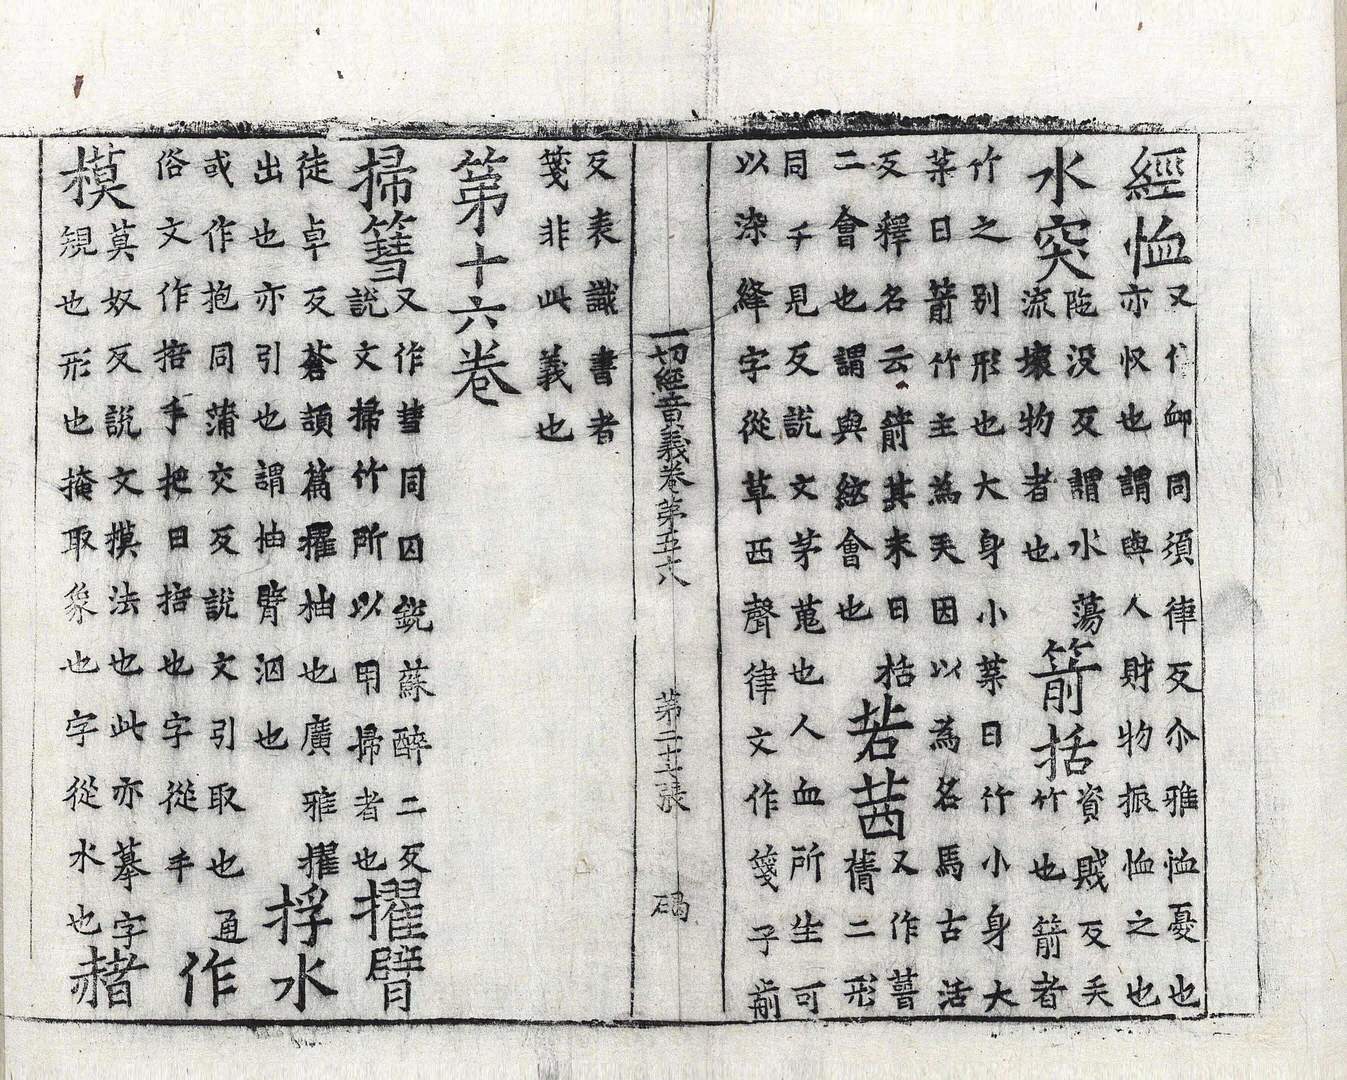 經恤又作卹同須律反尒雅恤憂也
亦収也謂與人財物振恤之也
水突陁没反謂水蕩
流壞物者也
箭括資賎反矢
竹也箭者
竹之别形也大身小葉曰竹小身大
葉曰箭竹主為矢因以為名焉古活
反釋名云箭其末曰栝
二會也謂與絃會也
若茜又作蒨二形
同千見反說文茅蒐也人血所生可
以染絳字從草西聲律文作箋子前
一切經音義卷第五六八 第二十七張 碣
反表識書者
箋非此義也
第十六卷
掃篲又作彗同囚銳蘇醉二反
說文掃竹所以用掃者也
擢臂
徒卓反蒼頡篇擢抽也廣雅擢
出也亦引也謂抽臂泅也
捊水
或作抱同蒲交反說文引取也通
俗文作掊手把曰掊也字從手
作
模莫奴反說文摸法也此亦摹字
規也形也掩取象也字從水也
赭